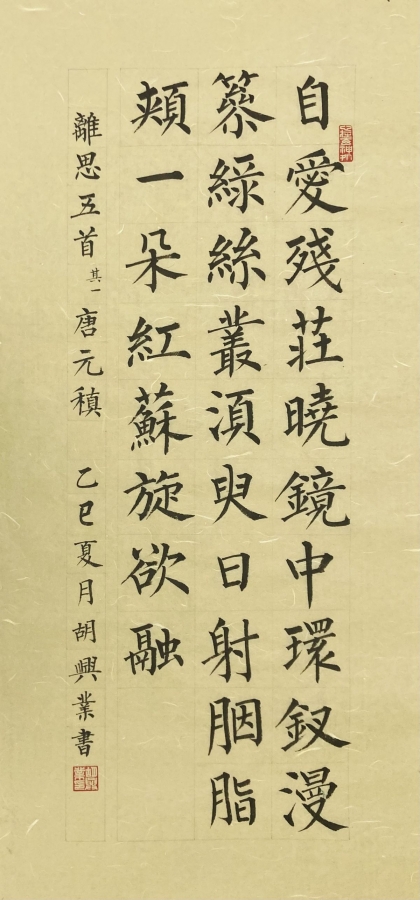 自愛殘荘曉鏡中環釵漫
篸緑絲叢湏臾日射胭脂
頰一朵紅蘇旋欲融
離思五首 其一 唐元稹 乙巳夏月胡興業書